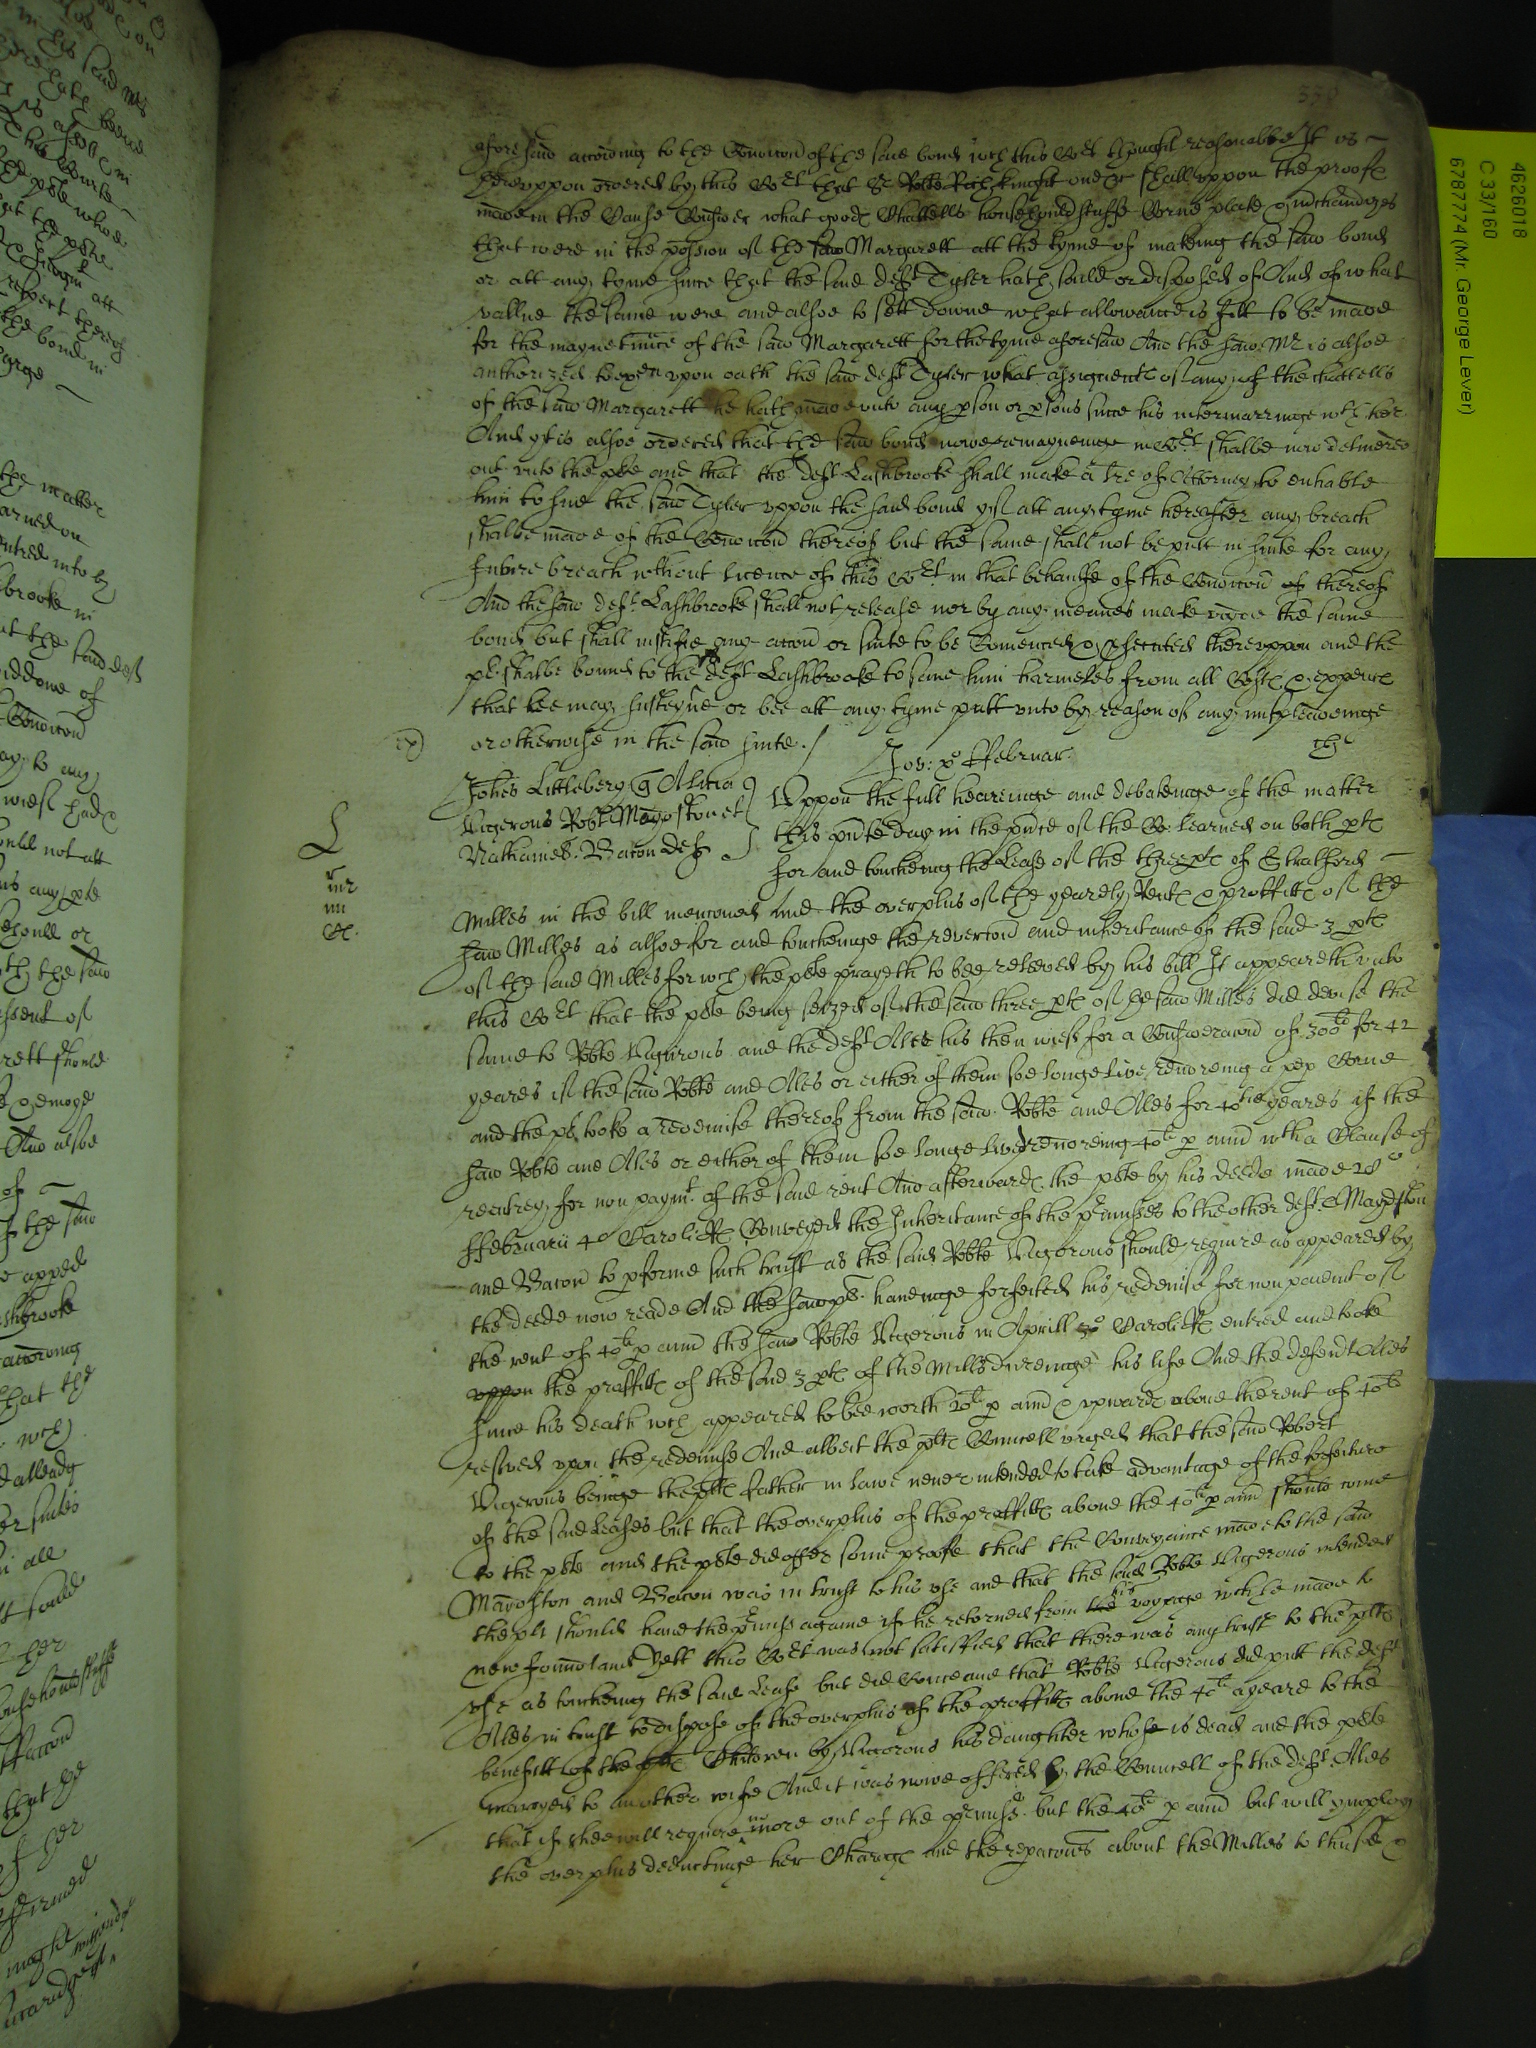 aforesaid according to the Condicon of the said bond wch this Cort thought reasonable It is
hereuppon ordered by this Cort that Sr Robte Rich knight one &c shall uppon the proofe
made in the Cause Consider what goodes Chattells househould stuffe Corne plate & mchandizes
that were in the possion of the said Margarett att the tyme of making the said bond
or att any tyme since that the said deft Tyler hath sould or disposed of And of what
vallue the same were and alsoe to sett downe what allowance is fitt to be made
for the mayntennce of the said Margarett for the tyme aforesaid And the said Mr is alsoe
authorized to exn upon oath the said deft Tyler what assignents of any of the chattells
of the said Margarett he hath made unto any pson or psons since his intermarriage wth her
And yt is alsoe ordered that the said bond nowe remayneinge in Cort shalbe now delivered
out unto the plte and that the deft Lashbrooke shall make a lre of Attorney to enhable
him to sue the said Tyler uppon the said bond yf att any tyme hereafter any breach
shalbe made of the Condicon thereof but the same shall not be putt in suite for any
future breach wthout licence of this Cort in that behaulfe of the Condicon of thereof
And the said deft Lashbrooke shall not release nor by any meanes make voyd the same
bond but shall iustifie any accon or suite to be Comenced & psecuted thereuppon and the
plt shalbe bound to the deft Lashbrooke to save him harmeles from all Costes & expences
that hee may susteyne or bee att any tyme putt unto by reason of any impleadeinge
or otherwise in the said suite./
Jov: xo ffebruar.
Johes Littlebery q Alicia
Vigerous Robt Maydston et
Nathaniel Bacon defs
Uppon the full heareinge and debateinge of the matter
this pnte day in the pnce of the Co: learned on both ptes
for and toucheing the Lease of the three ptes of Stratford
Milles in the bill menconed and the overplus of the yearely Rentes & proffittes of the
said Milles as alsoe for and toucheinge the revercon and inheritance of the said 3 ptes
of the said Milles for wch the plte prayeth to bee releeved by his bill It appeareth unto
this Cort that the plte being seized of the said three ptes of the said Milles did devise the
same to Robte Vigerous and the deft Ales his then wief for a Consideracon of 300li for 42
yeares if the said Robte and Ales or either of them soe longe live rendreing a pep Corne
and the plt tooke a redemise thereof from the said Robte and Ales for 40tie yeares if the
said Robte and Ales or either of them soe longe lived rendreing 40li p annu wth a Clause of
reentrey for non paymt of the said rent And afterwardes the plte by his deede made 28o
ffebruarii 4o Caroli Rs Conveyed the Inheritance of the prmisses to the other defts Maydston
and Bacon to pforme such trust as the said Robte Vigerous should require as appeared by
the deede now reade And the said plt haveinge forfeited his redemise for non paiment of
the rent of 40li p annu the said Robte Vigerous in Aprill Caroli Rs entred and tooke
uppon the proffittes of the said 3 ptes of the Mills dureinge his life And the defendt Ales
since his death wch appeared to bee worth 20li p annu & upwardes above the rent of 40li
reserved upon the redemise And albeit the pltes Councell urged that the said Robert
Vigerous beinge the pltes father in lawe never intended to take advantage of the forfeiture
of the said leases but that the overplus of the proffittes above the 40li p annu should come
to the plte and the plte did offer some proofe that the Conveyance made to the said
Maydston and Bacon was in trust to his use and that the said Robte Vigerous intended
the plt should have the prmiss againe if he retorned from his voyage wch he made to
new found land Yett this Cort was not satisfied that there was any trust to the pltes
use as toucheing the said Lease but did Conceave that Robte Vigerous did putt the deft
Ales in trust to dispose of the overplus of the proffittes above the 40li a yeare to the
benefitt of the pltes Children by Vigerous his daughter whoe is dead and the plte
marryed to another wife And it was nowe offred by the Councell of the deft Ales
that if shee will require noe more out of the prmisses but the 40li p annu but will ymploy
the overplus deducting her Charges and the reparacons about the Milles to thuse